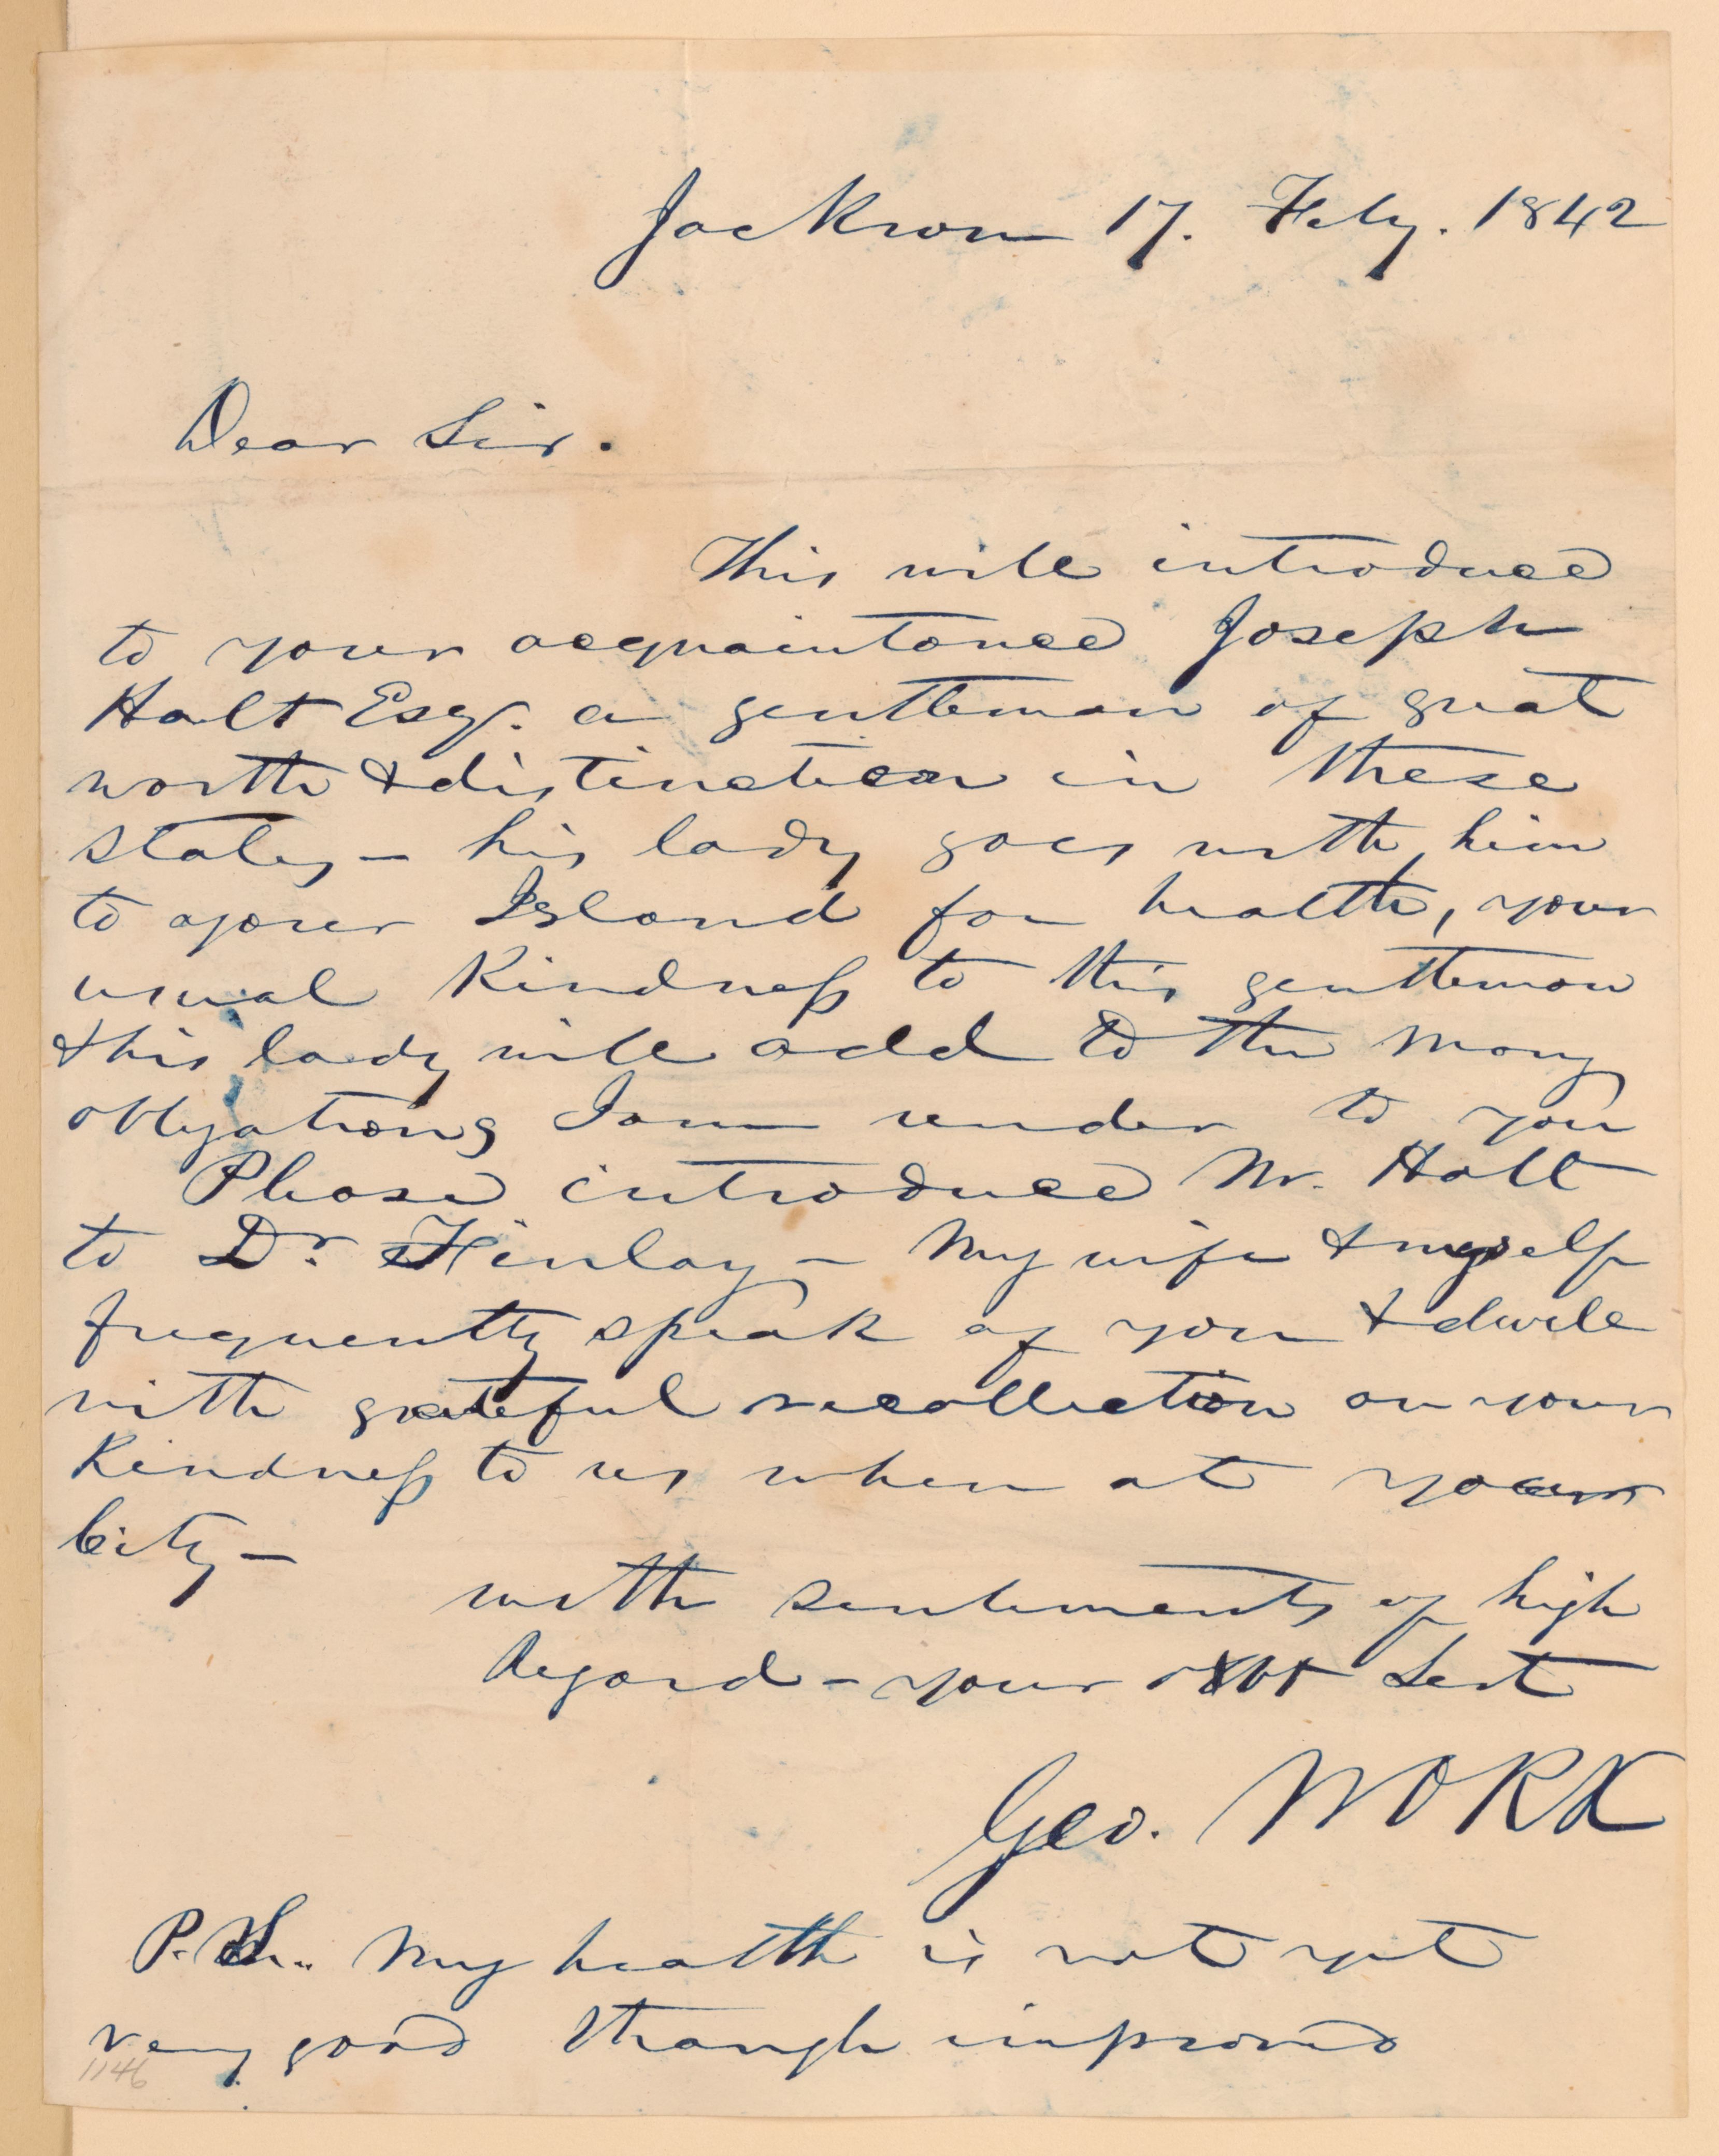 Jackson 17. Feby. 1842
Dear Sir.
This will introduce
to your acquaintance Joseph
Holt Esqr. a gentleman of great
worth & distinction in these
states – his lady goes with him
to your Island for health, your
usual kindness to this gentleman
& his lady will add to the many
obligations I am under to you
Please introduce Mr. Holt
to Dr. Finlay – My wife & myself
frequently speak of you & dwell
with grateful recollection on your
kindness to us when at your
City –
with sentiments of high
regard – your obt Sevt
Geo. WORK
P.S. My health is not yet
very good though improved
1146